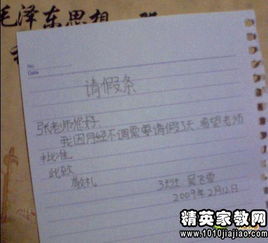 毛泽东思想
No.
Date
请假条
张老师您好:
我因月经不调需要请假3天 希望老师
批准
此致
敬礼
2009年2月12日
精英家教网
www.1010jiajiao.com